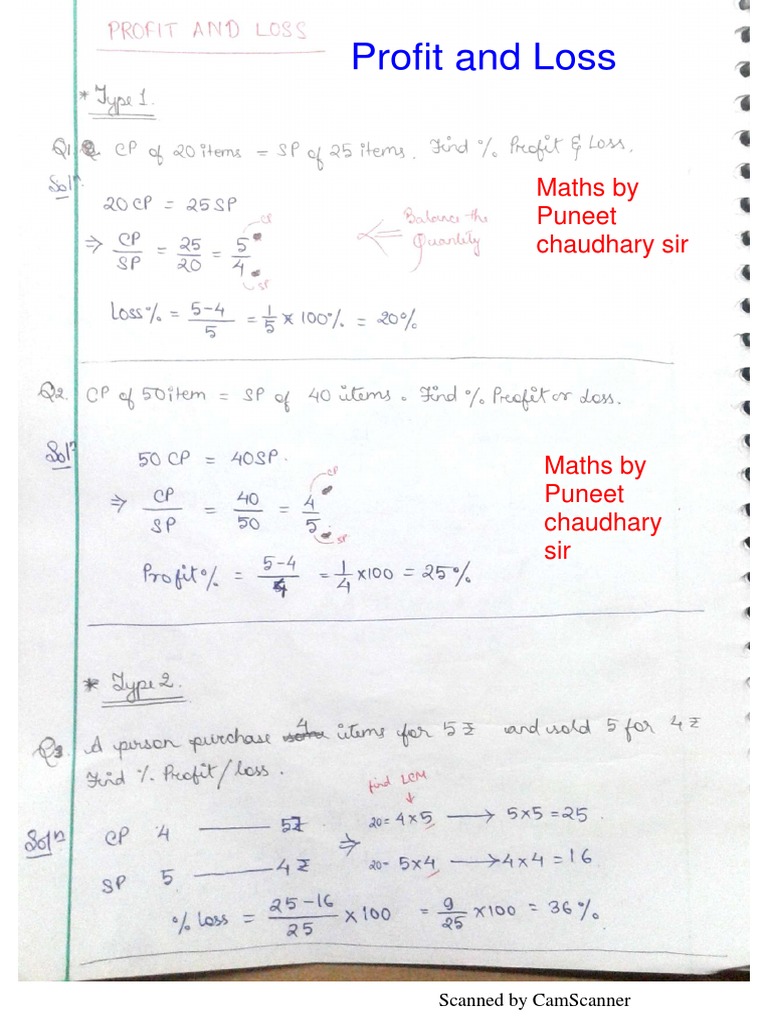 PROFIT AND LOSS
Profit and Loss
* Type 1.
Q1. CP of 20 items = SP of 25 items. Find % Profit & Loss.
Solⁿ
Maths by
Puneet
chaudhary sir
20 CP = 25 SP
⇒ CP/SP = 25/20 = 5/4
CP
SP
Balance the
Quantity
Loss% = 5-4/5 = 1/5 × 100% = 20%
Q2. CP of 50 item = SP of 40 items. Find % Profit or Loss.
Solⁿ
50 CP = 40 SP.
Maths by
Puneet
chaudhary
sir
⇒ CP/SP = 40/50 = 4/5
CP
SP
Profit% = 5-4/4 = 1/4 × 100 = 25%
* Type 2.
Q3. A person purchase 4 items for 5 ₹ and sold 5 for 4 ₹
Find % Profit/loss.
find LCM
Solⁿ
CP 4 —— 5₹ ⇒ 20 = 4×5 → 5×5 = 25.
SP 5 —— 4₹ 20 - 5×4 → 4×4 = 16
% loss = 25-16/25 × 100 = 9/25 × 100 = 36%
Scanned by CamScanner